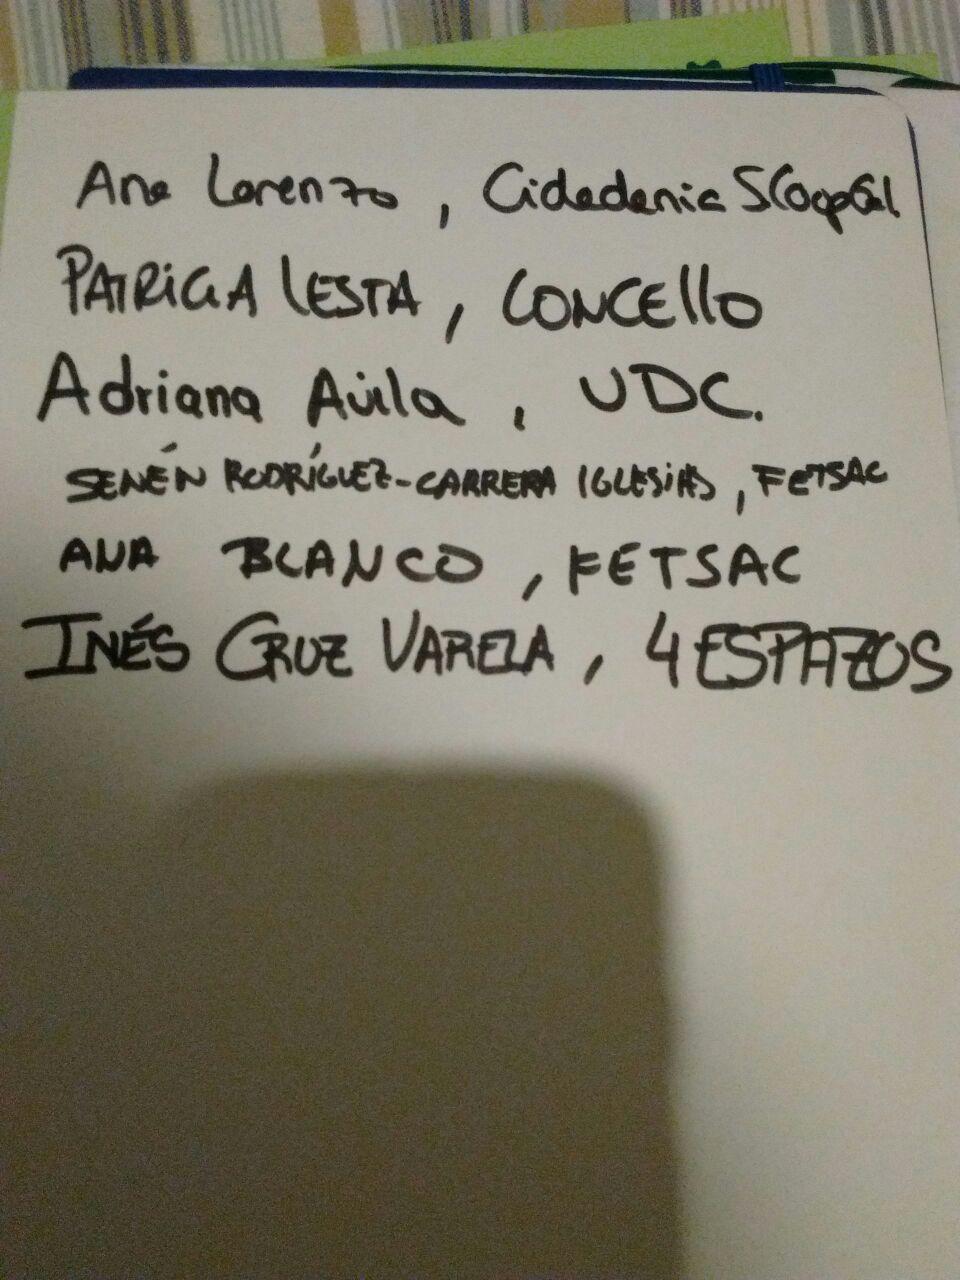 Ana Lorenzo, Cidadania SCoopGal
PATRICIA LESTA, CONCEllO
Adriana Ávila, UDC.
SENÉN RODRÍGUEZ-CARRERA IGLESIAS, FETSAC
ANA BLANCO, FETSAC
INÉS CRUZ VARELA, 4ESPAZOS